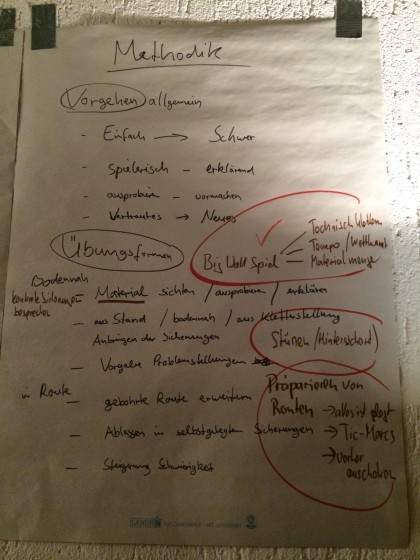 Methodik
Vorgehen allgemein
- Einfach → Schwer
- Spielerisch - erklärend
- ausprobieren - vormachen
- Vertrautes → Neues
Übungsformen
Big Wall Spiel
Technisch klettern
Tempo / Wettkampf
Material menge
Bodennah
- Material sichten / ausprobieren / erklären
besprechen
- aus Stand / bodennah / aus Kletterstellung
Anbringen der Sicherungen
Stürzen (Hintersichert)
- Vorgabe Problemstellungen
in Route
- gebohrte Route erweitern
- Ablassen in selbstgelegten Sicherungen
- Steigerung Schwierigkeit
Präparieren von
Routen → alles ist
→ Tic-Marcs
→ vorher
anschauen